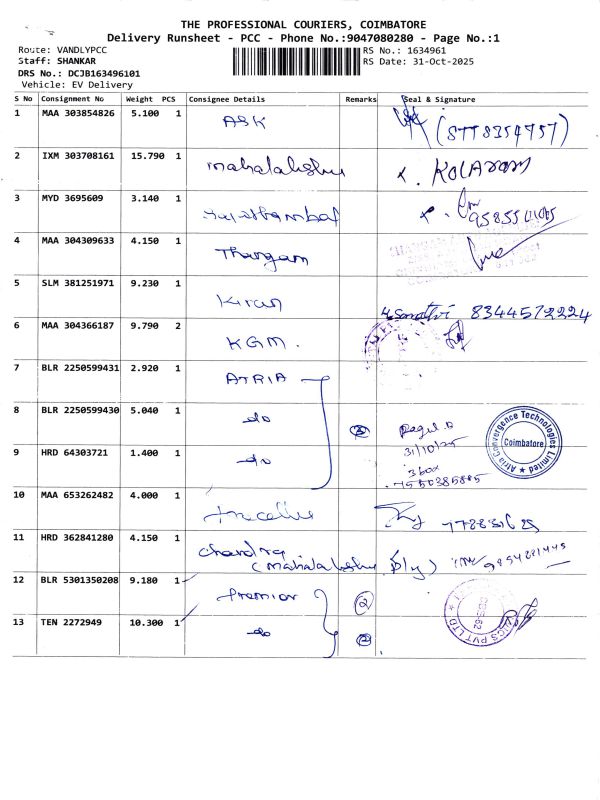 THE PROFESSIONAL COURIERS, COIMBATORE
Delivery Runsheet - PCC - Phone No.:9047080280 - Page No.:1
Route: VANDLYPCC
RS No.: 1634961
Staff: SHANKAR
RS Date: 31-Oct-2025
DRS No.: DCJB163496101
Vehicle: EV Delivery
S No Consignment No Weight PCS Consignee Details Remarks Seal & Signature
1 MAA 303854826 5.100 1 ASK (8778354757)
2 IXM 303708161 15.790 1 mahalakshmi x. KOLARAM
3 MYD 3695609 3.140 1
4 MAA 304309633 4.150 1 Thangam
5 SLM 381251971 9.230 1 Kiran 8344572224
6 MAA 304366187 9.790 2 KGM.
7 BLR 2250599431 2.920 1 ATRIA
8 BLR 2250599430 5.040 1 do 3
Atria Convergence Technologies Limited
Coimbatore
9 HRD 64303721 1.400 1 do 31/10/25
3 box
10 MAA 653262482 4.000 1
11 HRD 362841280 4.150 1 chandra
(mahalakshmi Ply)
12 BLR 5301350208 9.180 1 Premier 2
13 TEN 2272949 10.300 1 do
PVT LTD